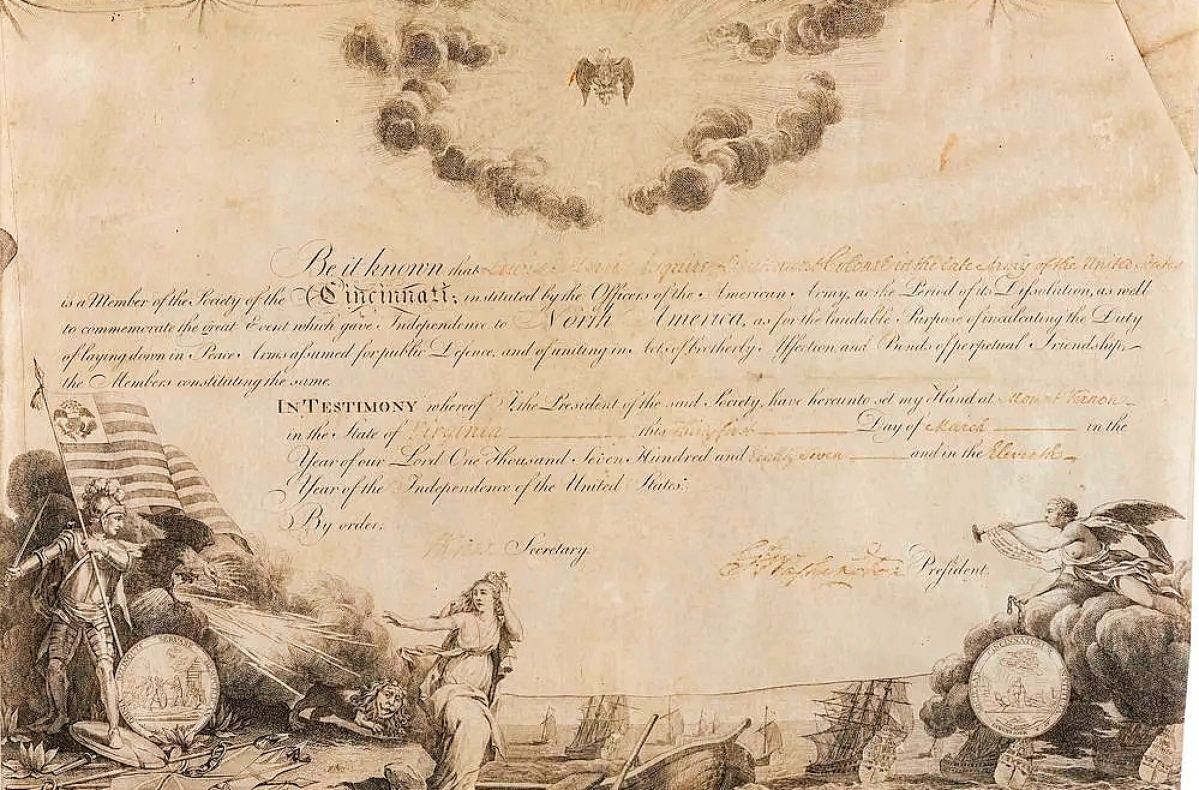 Be it known that Esquire Lieutenant Colonel in the late Army of the United States
is a Member of the Society of the Cincinnati; instituted by the Officers of the American Army, at the Period of its Dissolution, as well
to commemorate the great Event which gave Independence to North America, as for the laudable Purpose of inculcating the Duty
of laying down in Peace Arms assumed for public Defence, and of uniting in Acts of brotherly Affection and Bonds of perpetual Friendship,
the Members constituting the same.
IN TESTIMONY whereof I, the President of the said Society, have hereunto set my Hand at Mount Vernon
in the State of Virginia this Thirty first Day of March in the
Year of our Lord One Thousand Seven Hundred and Eighty Seven and in the Eleventh
Year of the Independence of the United States.
By order,
Secretary.
G Washington President.